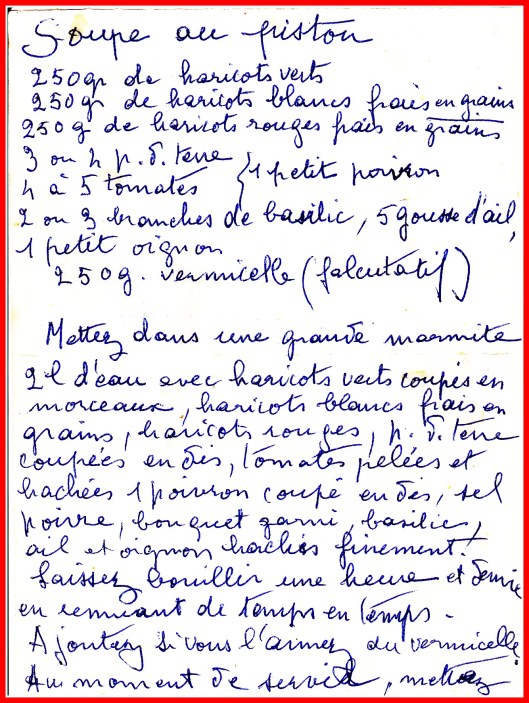 Soupe au piston
250gr de haricots verts
250gr de haricots blancs frais en grains
250 g de haricots rouges frais en grains
3 ou 4 p. d. terre
4 à 5 tomates } 1 petit poivron
2 ou 3 branches de basilic, 5 gousse d'ail,
1 petit oignon
250g. vermicelle (falcutatif)
Mettez dans une grande marmite
2l d'eau avec haricots verts coupés en
morceaux, haricots blancs frais en
grains, haricots rouges, p. d. terre
coupées en dés, tomates pelées et
hachées 1 poivron coupé en dés, sel
poivre, bouquet garni, basilic,
ail et oignon hachés finement.
Laissez bouillir une heure et demie
en remuant de temps en temps.
Ajoutez si vous l'aimez du vermicelle
Au moment de servir, mettez